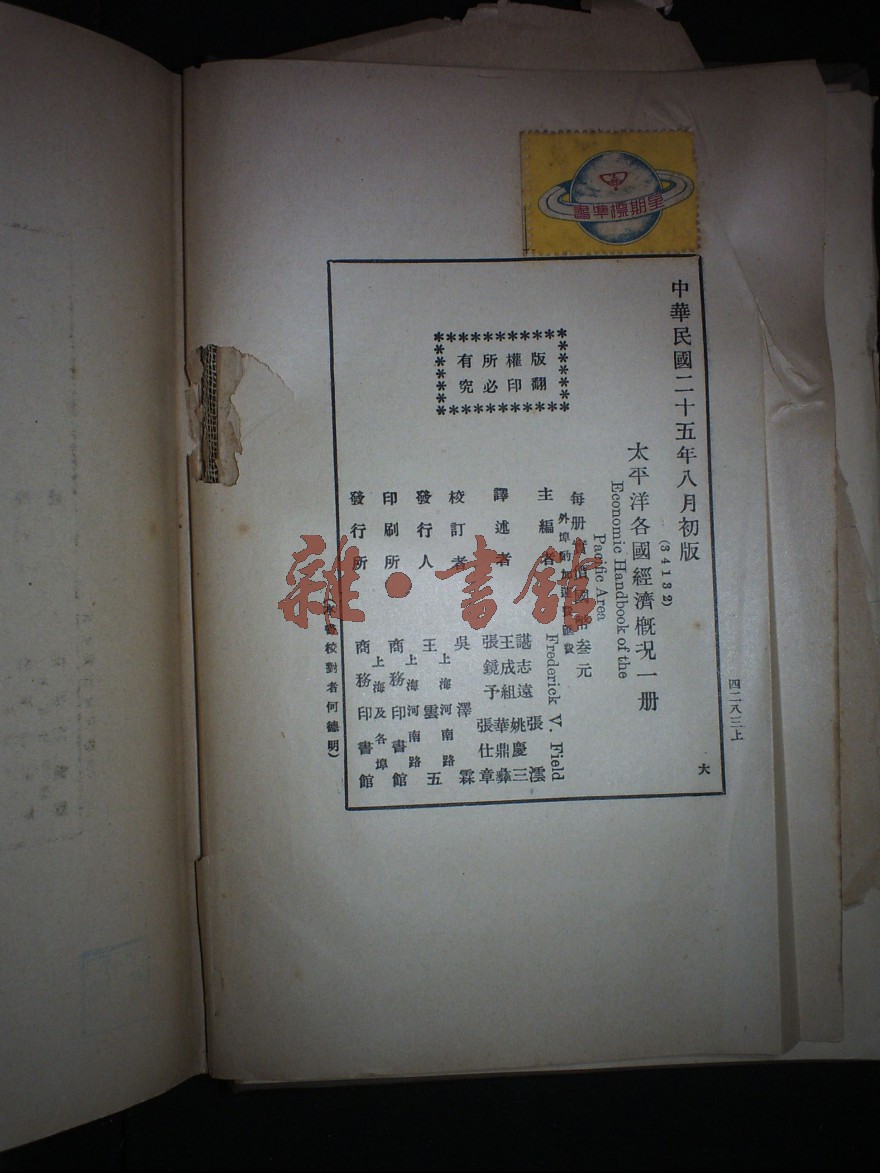 星期標準書
中華民國二十五年八月初版
(34132)
太平洋各國經濟概况一册
Economic Handbook of the
Pacific Area
每册實價國幣叁元
外埠酌加運費匯費
主編者 Frederick V. Field
譯述者
張澐
諶志遠 姚慶三
王成組 華鼎彝
張鏡予 張仕章
校訂者 吳澤霖
發行人 王雲五
上海河南路
印刷所 商務印書館
上海河南路
發行所 商務印書館
上海及各埠
版權所有
翻印必究
(本書校對者何德明)
四二八三上
大
雜·書館